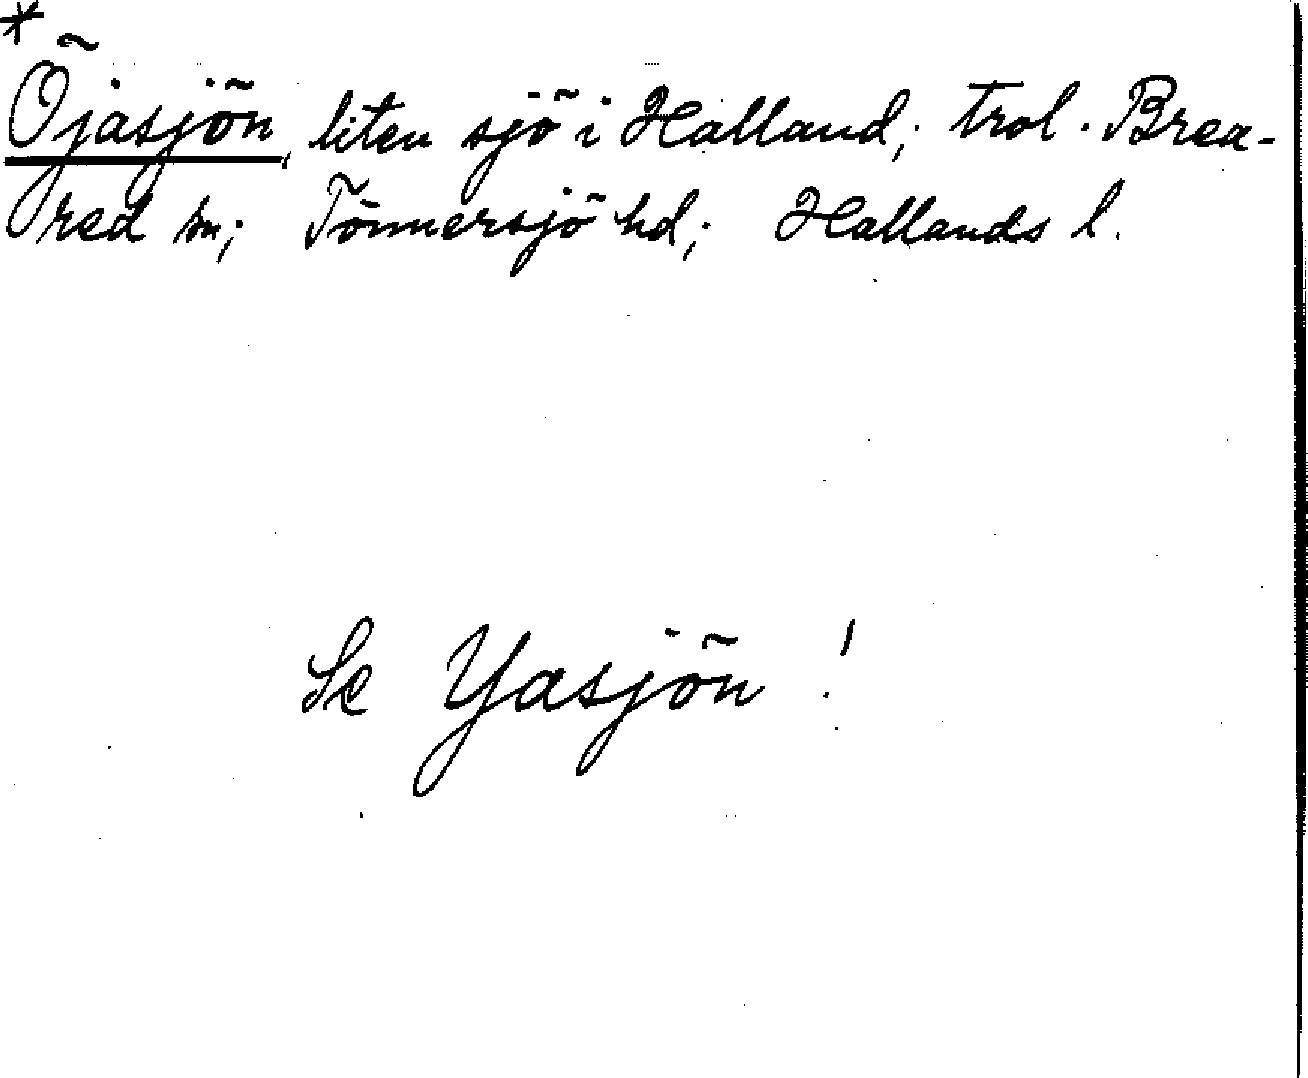 *
Öjasjön, liten sjö i Halland; trol. Brea-
red sn; Tönnersjö hd; Hallands l.
Se Yasjön!